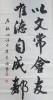 以文常會友
唯德自成鄰